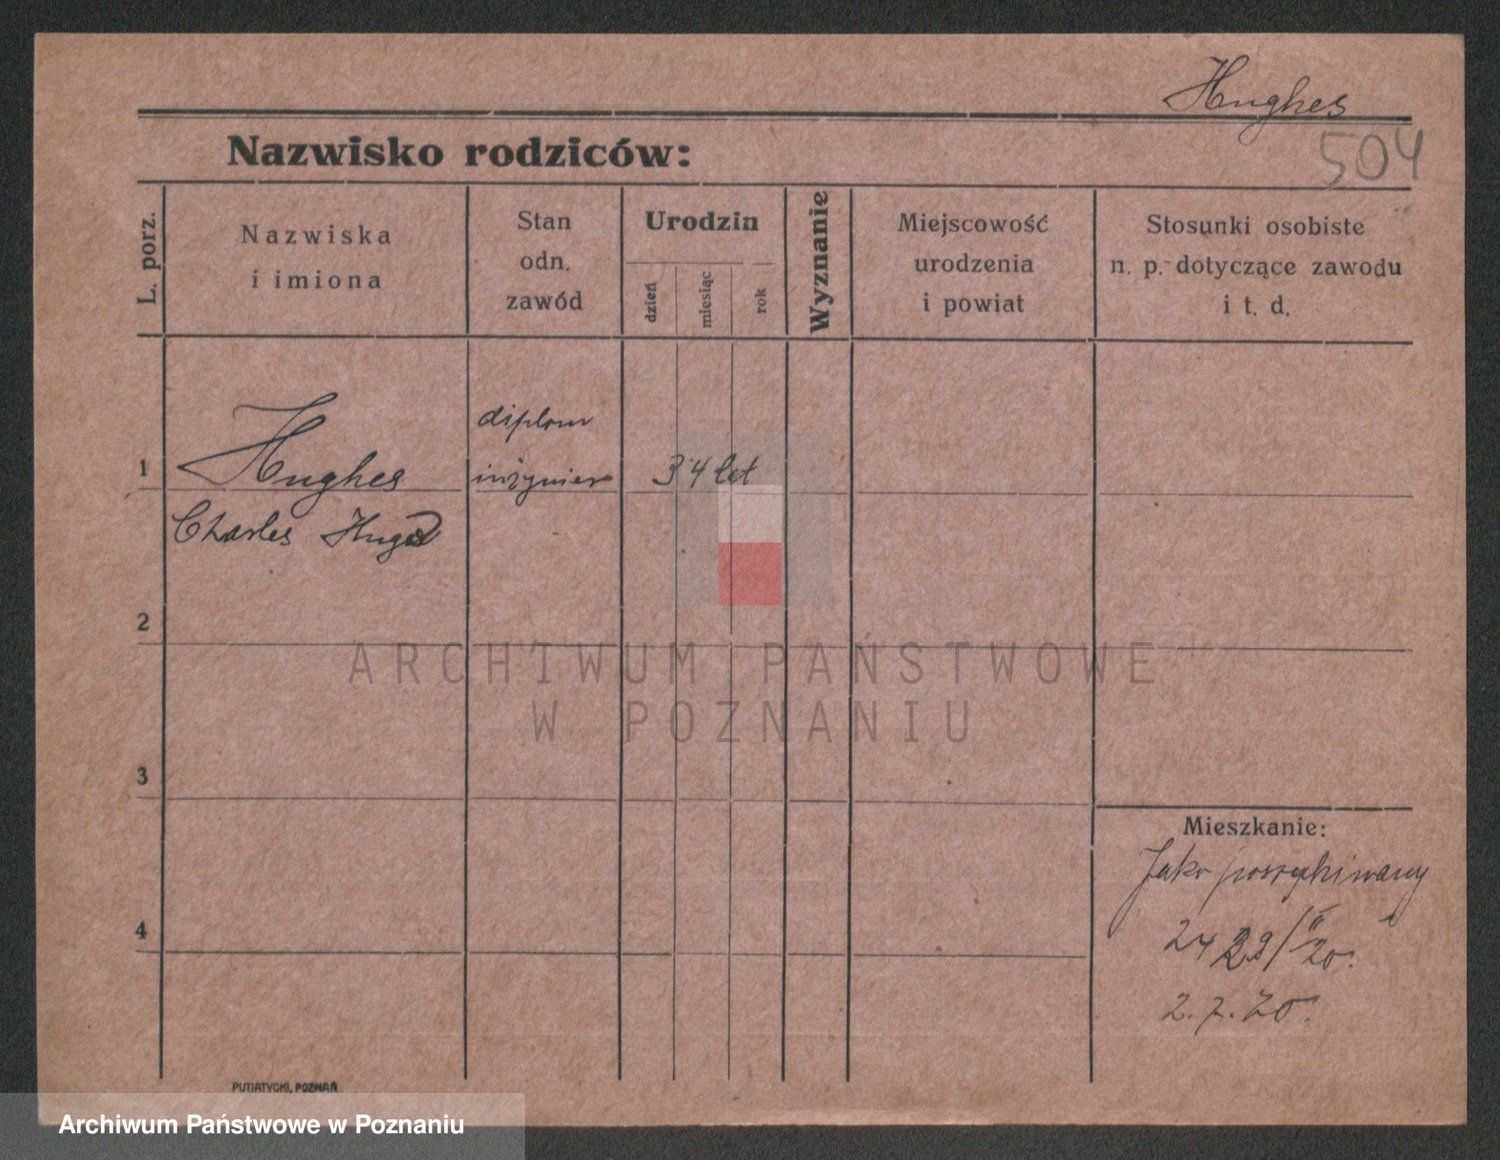 Hughes
504
Nazwisko rodziców:
L. porz.
Nazwiska
i imiona
Stan
odn.
zawód
Urodzin
dzień
miesiąc
rok
Wyznanie
Miejscowość
urodzenia
i powiat
Stosunki osobiste
n. p. dotyczące zawodu
i t. d.
1
Hughes
diplom
inżynier
34 let
Charles
2
3
4
Mieszkanie:
Jako poszukiwany
2. 7. 20.
PUTIATYCKI, POZNAŃ
ARCHIWUM PAŃSTWOWE
W POZNANIU
Archiwum Państwowe w Poznaniu